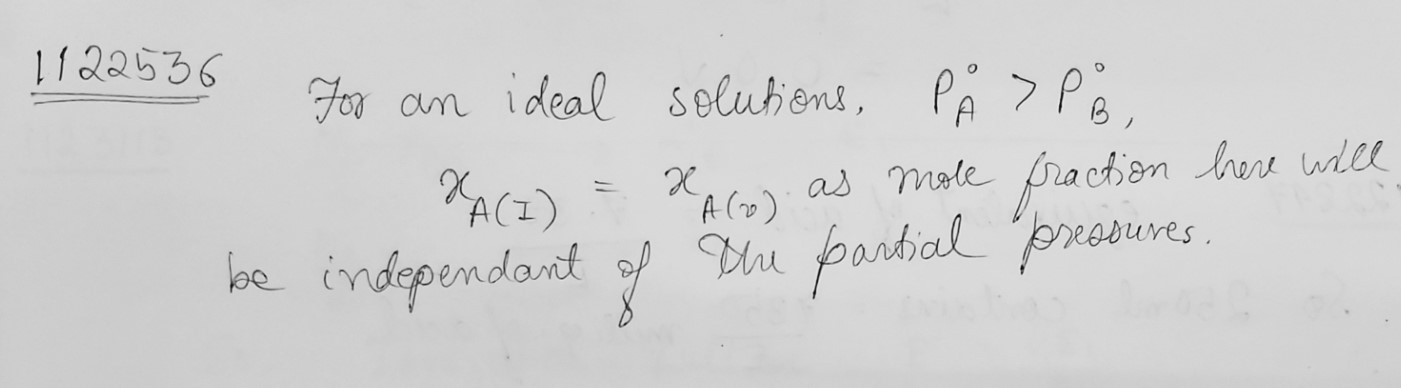 1122536
For an ideal solutions, P°A > P°B,
xA(I) = xA(v) as mole fraction here will
be independant of the partial pressures.